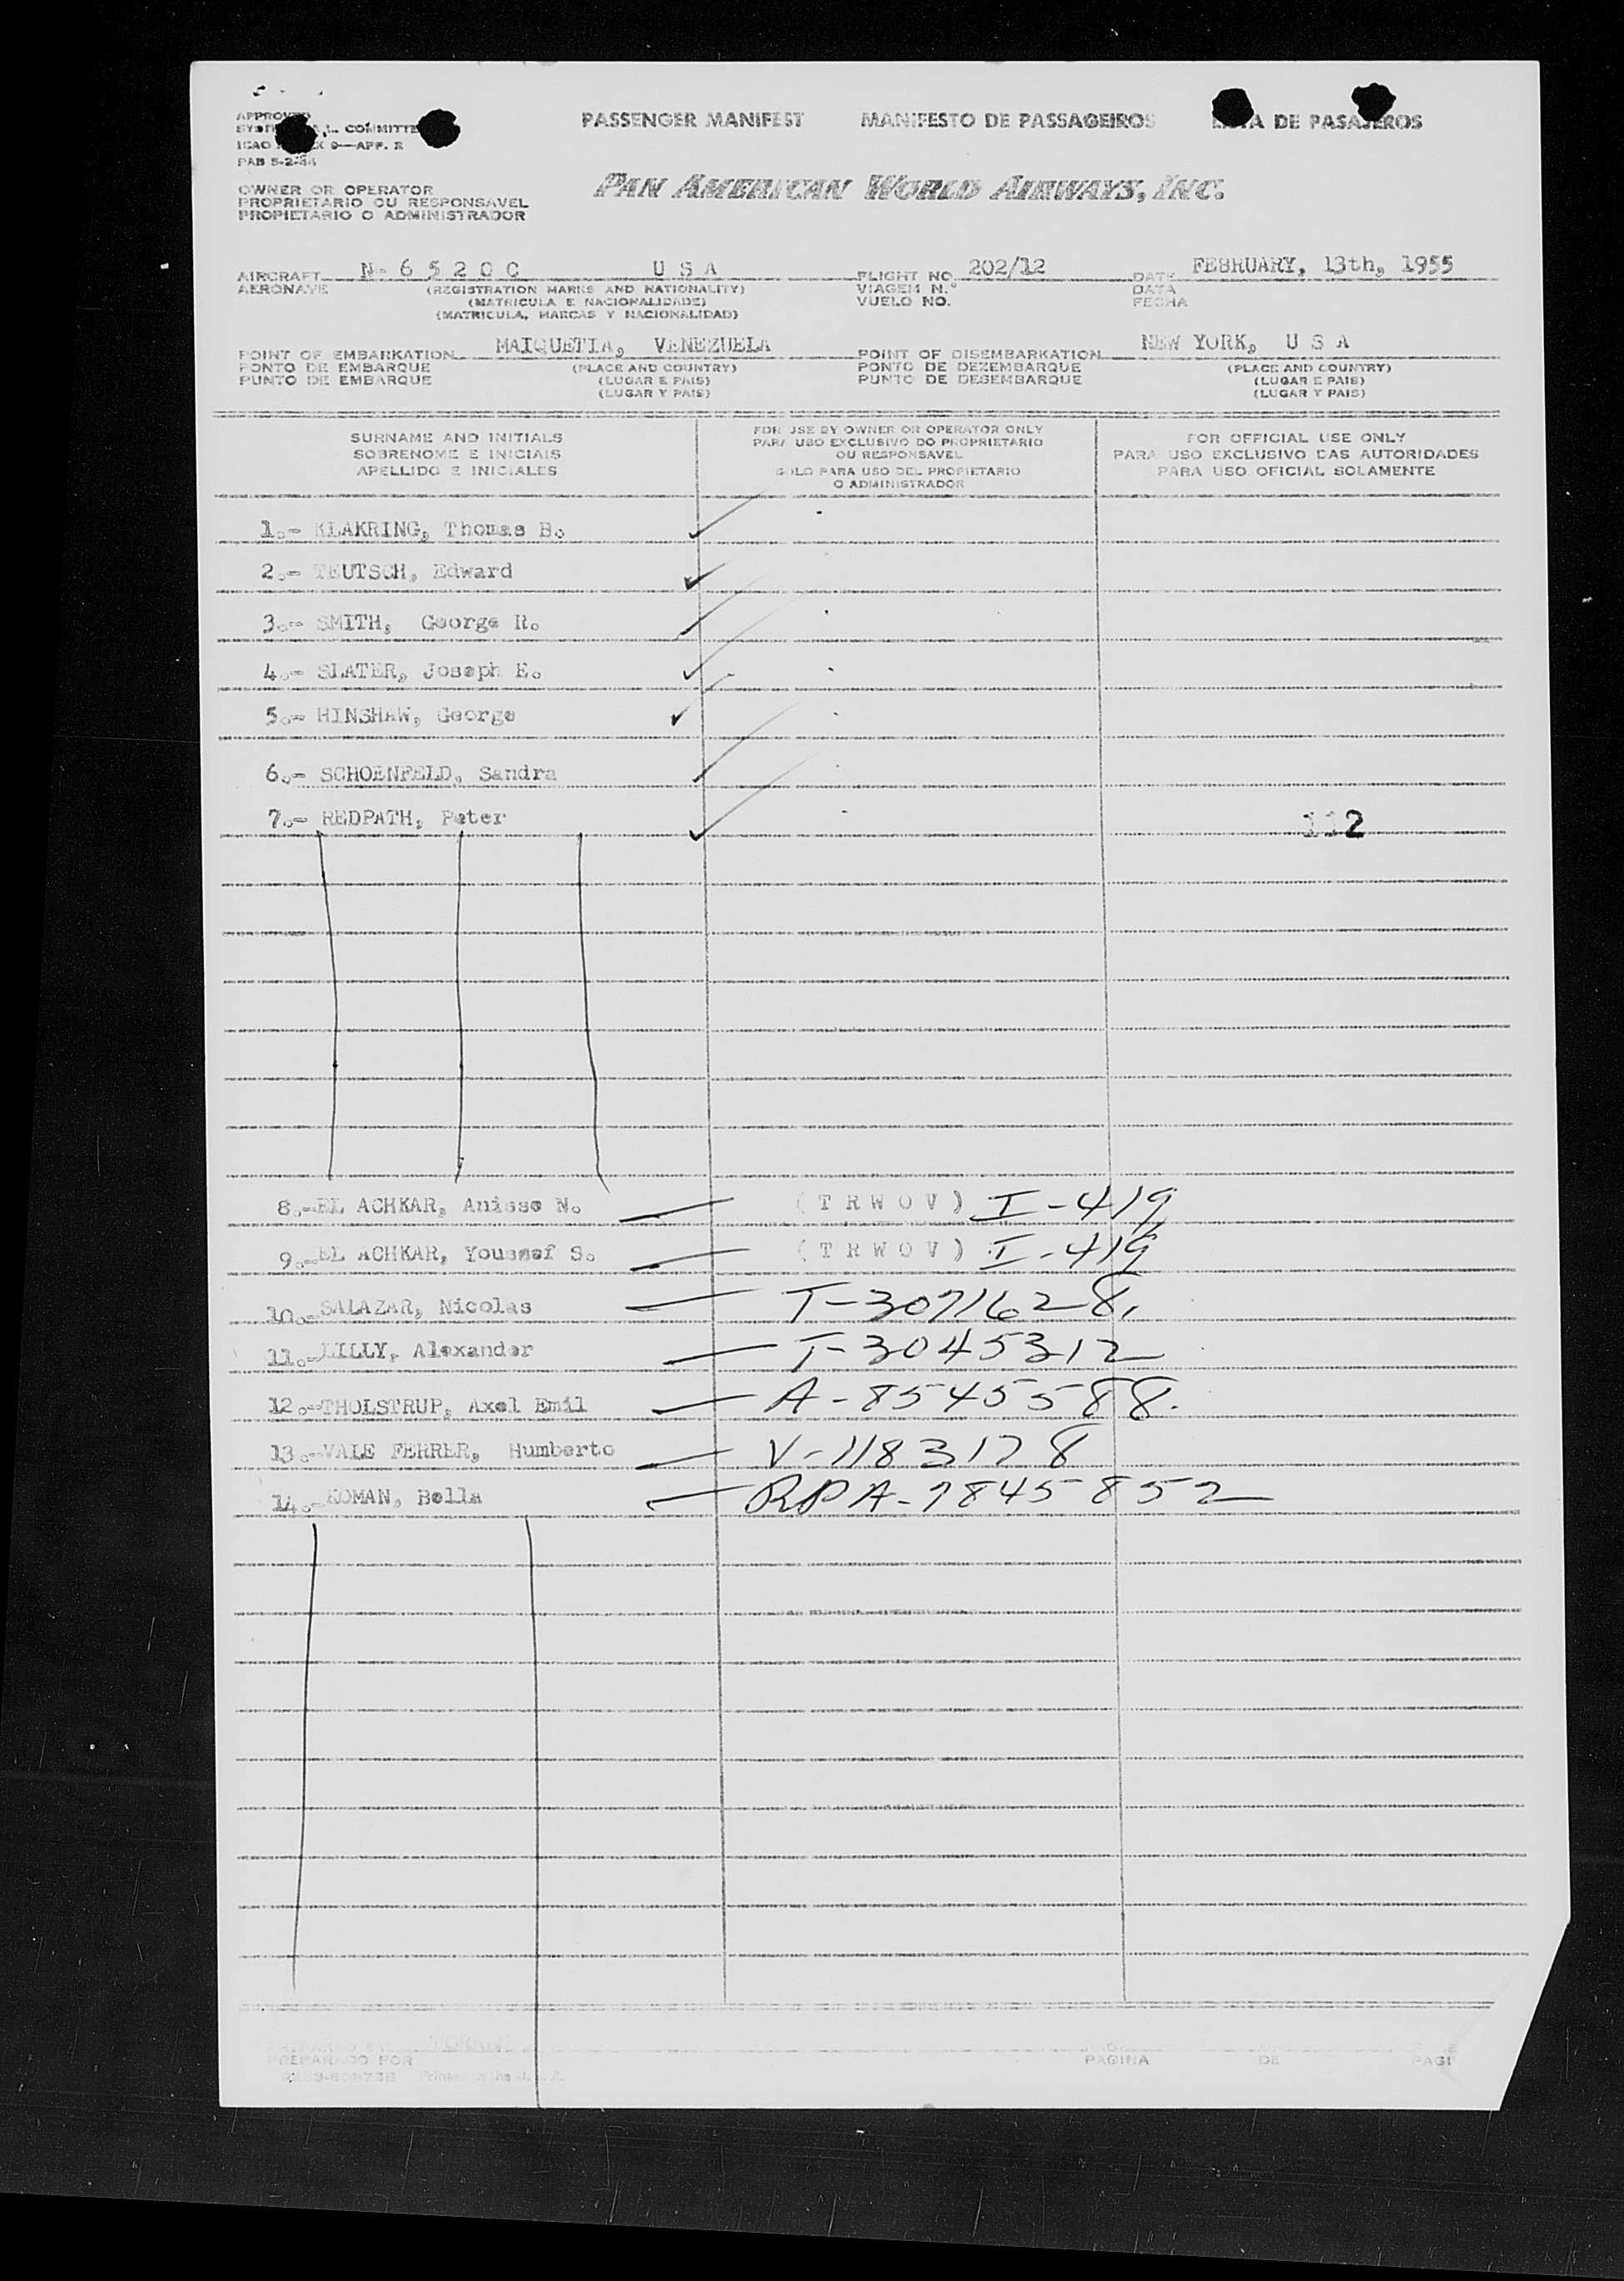 PASSENGER MANIFEST MANIFESTO DE PASSAGEIROS DE PASAJEROS
COMMITTEE
9—APP. 2
OWNER OR OPERATOR
PROPRIETARIO OU RESPONSAVEL
PROPIETARIO O ADMINISTRADOR
PAN AMERICAN WORLD AIRWAYS, INC.
AIRCRAFT N- 6 5 2 0 C U S A FLIGHT NO. 202/12 DATE FEBRUARY, 13th, 1955
AERONAVE (REGISTRATION MARKS AND NATIONALITY) VIAGEM N.º DATA
(MATRICULA E NACIONALIDADE) VUELO NO. FECHA
(MATRICULA, MARCAS Y NACIONALIDAD)
POINT OF EMBARKATION MAIQUETIA, VENEZUELA POINT OF DISEMBARKATION NEW YORK, U S A
PONTO DE EMBARQUE (PLACE AND COUNTRY) PONTO DE DEZEMBARQUE (PLACE AND COUNTRY)
PUNTO DE EMBARQUE (LUGAR E PAIS) PUNTO DE DESEMBARQUE (LUGAR E PAIS)
(LUGAR Y PAIS) (LUGAR Y PAIS)
SURNAME AND INITIALS
SOBRENOME E INICIAIS
APELLIDO E INICIALES
FOR USE BY OWNER OR OPERATOR ONLY
PARA USO EXCLUSIVO DO PROPRIETARIO
OU RESPONSAVEL
SOLO PARA USO DEL PROPIETARIO
O ADMINISTRADOR
FOR OFFICIAL USE ONLY
PARA USO EXCLUSIVO DAS AUTORIDADES
PARA USO OFICIAL SOLAMENTE
1.- KLAKRING, Thomas B.
2.- TEUTSCH, Edward
3.- SMITH, George R.
4.- SLATER, Joseph E.
5.- HINSHAW, George
6.- SCHOENFELD, Sandra
7.- REDPATH, Peter 112
8.-EL ACHKAR, Anisse N. ( T R W O V ) I-419
9.-EL ACHKAR, Youssef S. ( T R W O V ) I-419
10.-SALAZAR, Nicolas T-3071628.
11.-LILLY, Alexander T-3045312
12.-THOLSTRUP, Axel Emil A-8545588.
13.-VALE FERRER, Humberto V-1183178
14.-KOMAN, Bella RPA-7845852
PREPARADO POR PAGINA DE